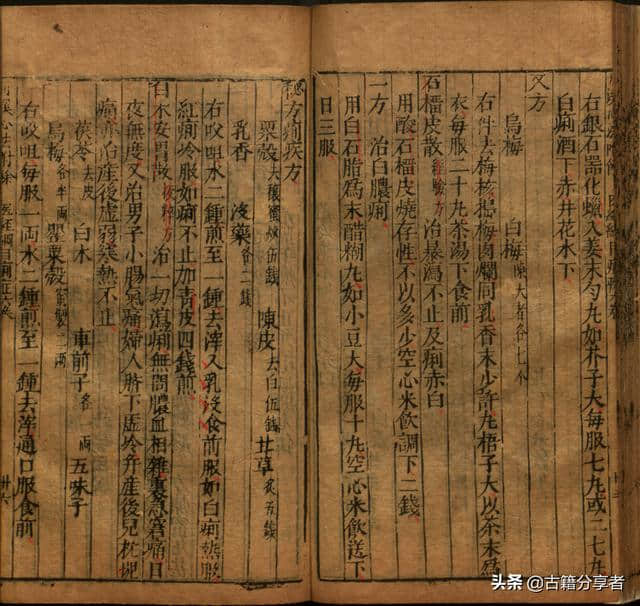 右銀石器化蠟入姜末勻丸如芥子大每服七丸或二七丸
白痢酒下赤井花水下
又方
烏梅 白梅陳大者各七个
右件去梅核搗梅肉爛同乳香末少許丸梧子大以茶末為
衣每服二十丸茶湯下食前
石榴皮散經驗方 治暴瀉不止及痢赤白
用酸石榴皮燒存性不以多少空心米飲調下二錢
一方 治白膿痢
用白石脂為末醋糊丸如小豆大每服十丸空心米飲送下
日三服
總方痢疾方
粟殼大顆蜜炒伍錢 陳皮去白伍錢 甘草炙五錢
乳香 沒藥各二錢
右㕮咀水二鍾煎至一鍾去滓入乳沒食前服如白痢熱服
紅痢冷服如痢不止加青皮四錢煎
白术安胃散 治一切瀉痢無問膿血相雜裏急窘痛日
夜無度又治男子小腸氣痛婦人臍下虛冷并産後兒枕塊
痛亦治産後虛弱寒熱不止
茯苓去皮 白术 車前子各一兩 五味子
烏梅各半兩 罌粟殼
右㕮咀每服一兩水二鍾煎至一鍾去滓通口服食前
头条 @古籍分享者